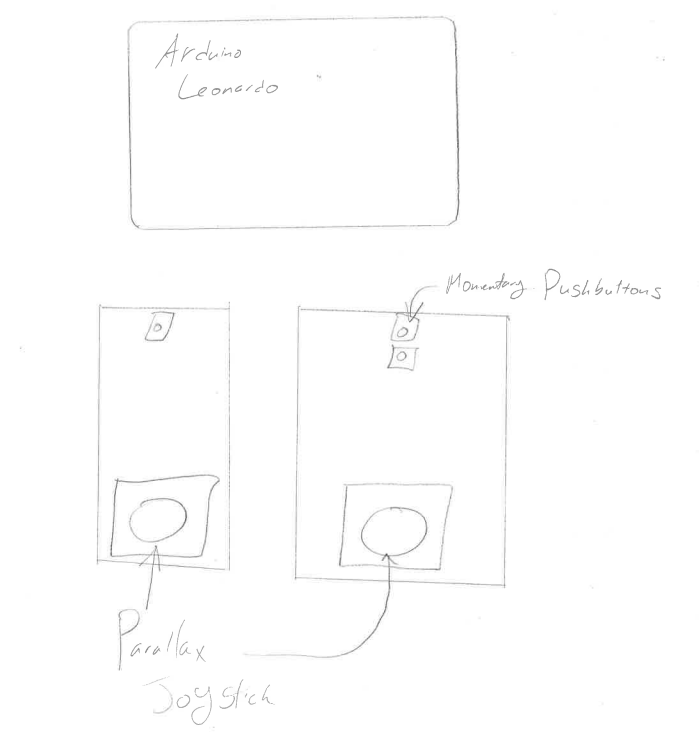 Arduino
Leonardo
Momentary Pushbuttons
Parallax
Joystick